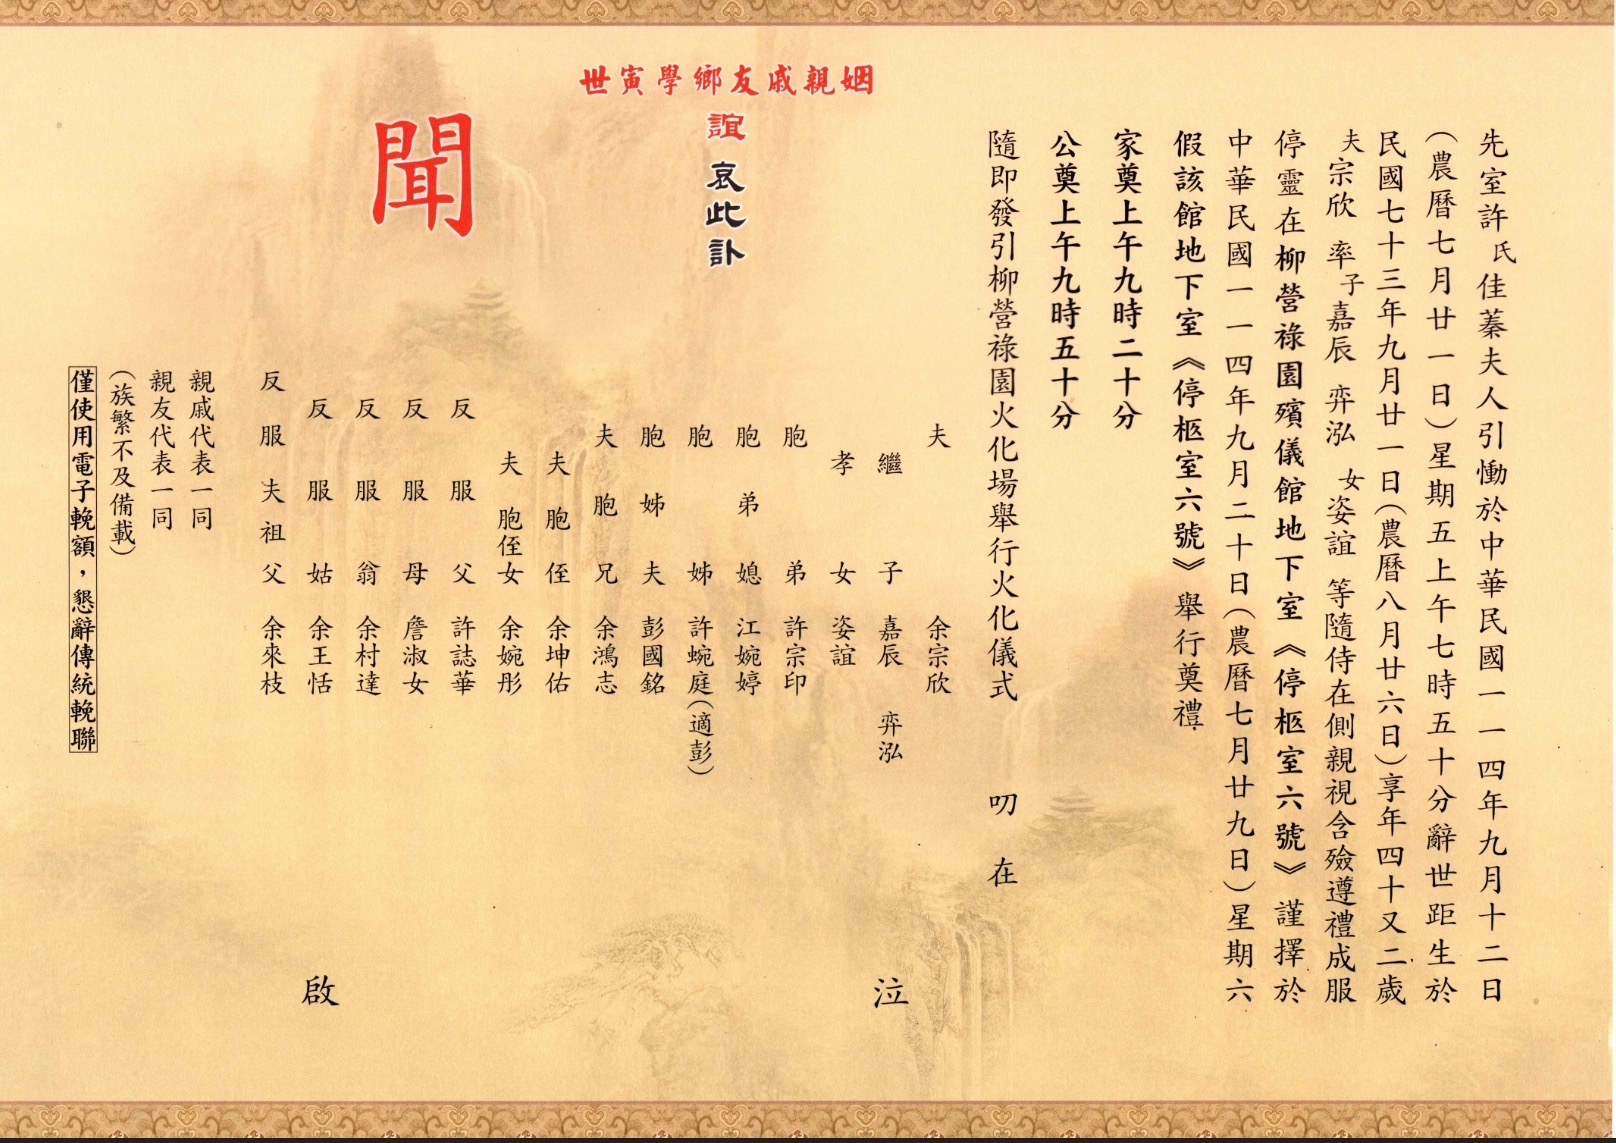 先室許氏佳蓁夫人引慟於中華民國一一四年九月十二日
(農曆七月廿一日)星期五上午七時五十分辭世距生於
民國七十三年九月廿一日(農曆八月廿六日)享年四十又二歲
夫宗欣 率子嘉辰 弈泓 女姿誼 等隨侍在側親視含殮遵禮成服
停靈在柳營祿園殯儀館地下室《停柩室六號》謹擇於
中華民國一一四年九月二十日(農曆七月廿九日)星期六
假該館地下室《停柩室六號》舉行奠禮.
家奠上午九時二十分
公奠上午九時五十分
隨即發引柳營祿園火化場舉行火化儀式 叨在
姻親戚友鄉學寅世
誼 哀此訃
聞
夫 余宗欣
繼子 嘉辰 弈泓
孝女 姿誼
泣
胞弟 許宗印
胞弟媳 江婉婷
胞姊 許蜿庭(適彭)
胞姊夫 彭國銘
夫胞兄 余鴻志
夫胞侄 余坤佑
夫胞侄女 余婉彤
反服父 許誌華
反服母 詹淑女
反服翁 余村達
反服姑 余王恬
反服夫祖父 余來枝
啟
親戚代表一同
親友代表一同
(族繁不及備載)
僅使用電子輓額，懇辭傳統輓聯